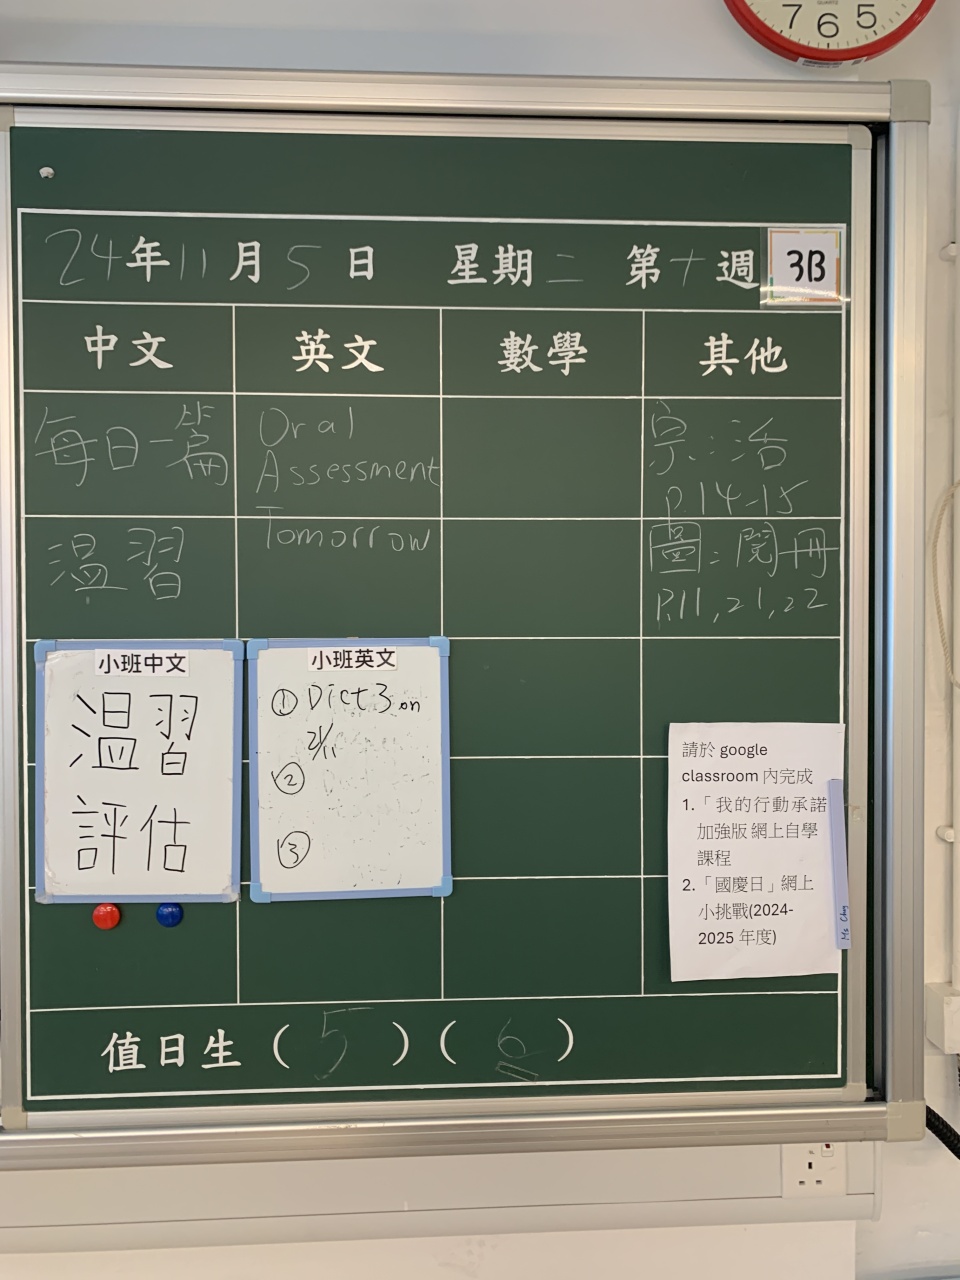 7 6 5
24年11月5日 星期二 第十週 3B
中文 英文 數學 其他
每日一篇
溫習
Oral
Assessment
Tomorrow
宗:活
P.14-15
圖:閱冊
P.11,21,22
小班中文
溫習
評估
小班英文
① Dict 3 on
②
③
請於 google
classroom 內完成
1.「我的行動承諾
加強版 網上自學
課程
2.「國慶日」網上
小挑戰(2024-
2025 年度)
值日生 ( 5 ) ( 6 )